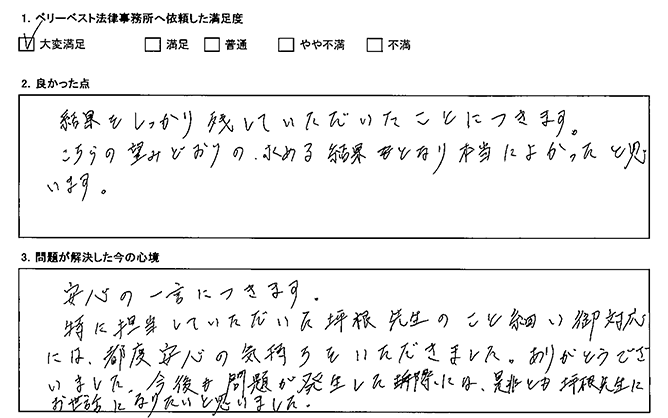 1. ベリーベスト法律事務所へ依頼した満足度
大変満足 満足 普通 やや不満 不満
2. 良かった点
結果をしっかり残していただいたことにつきます。
こちらの望みどおりの、求める結果となり本当によかったと思
います。
3. 問題が解決した今の心境
安心の一言につきます。
特に担当していただいた坪根先生のこと細い御対応
には、都度安心の気持ちをいただきました。ありがとうござ
いました。今後も問題が発生した際には、是非とも坪根先生に
お世話になりたいと思いました。